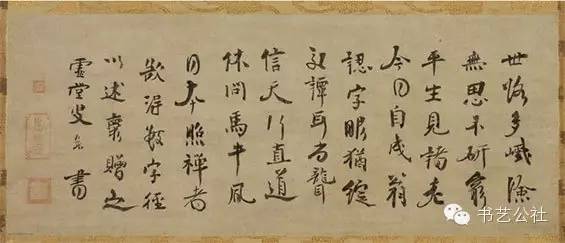 世路多巇險
無思不研窮
平生見諸老
今日自成翁
認字眼猶綻
交譚耳尚聾
信天行直道
休問馬牛風
日本照禪者
欲得數字徑
以述懷贈之
虛堂叟 書
书艺公社